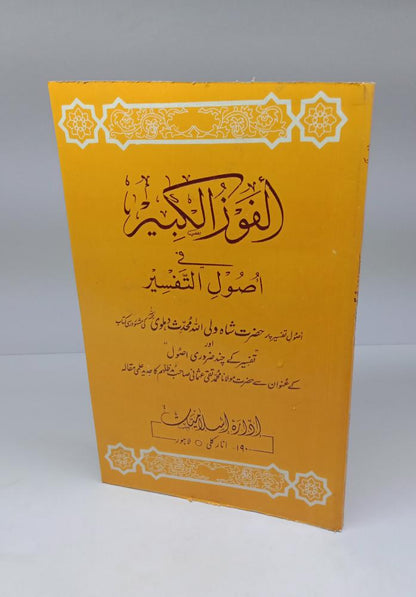 الفوز الكبير
في
أصول التفسير
اصول تفسیر پر حضرت شاہ ولی اللہ محدث دہلوی کی مشہور کتاب
اور
تفسیر کے چند ضروری اصول
کے عنوان سے حضرت مولانا محمد تقی عثمانی صاحب مدظلہم کا جدید علمی مقالہ
ادارۂ اسلامیات
۱۹۰ انار کلی ○ لاہور